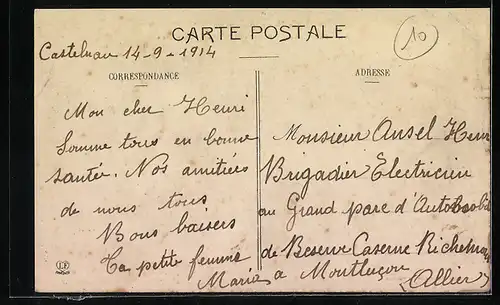 CARTE POSTALE
10
Castelnau 14-9-1914
CORRESPONDANCE
ADRESSE
Mon cher Henri
Somme tous en bonne
santé. Nos amitiers
de nous tous
Bons baisers
Ta petite femme
Maria
Monsieur Ansel Henri
Brigadier Electricien
au Grand parc d'Automobile
de Reserve Caserne Richemont
a Montluçon
(Allier)